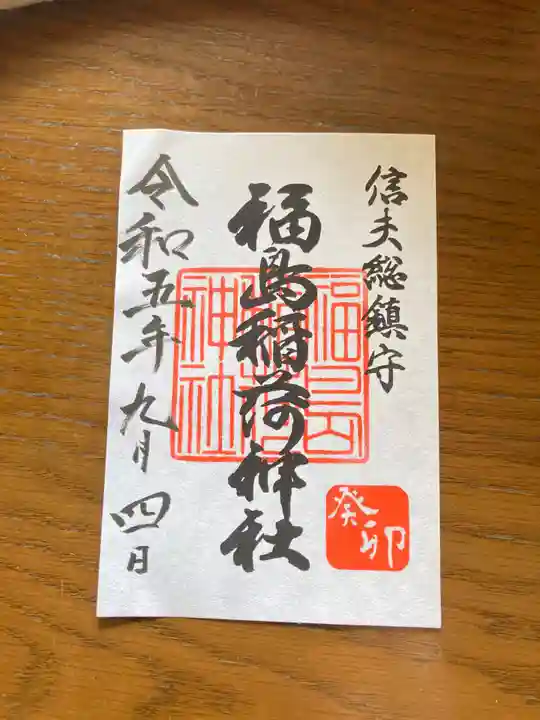 信夫総鎮守
福島稲荷神社
福島稲荷神社
癸卯
令和五年九月四日